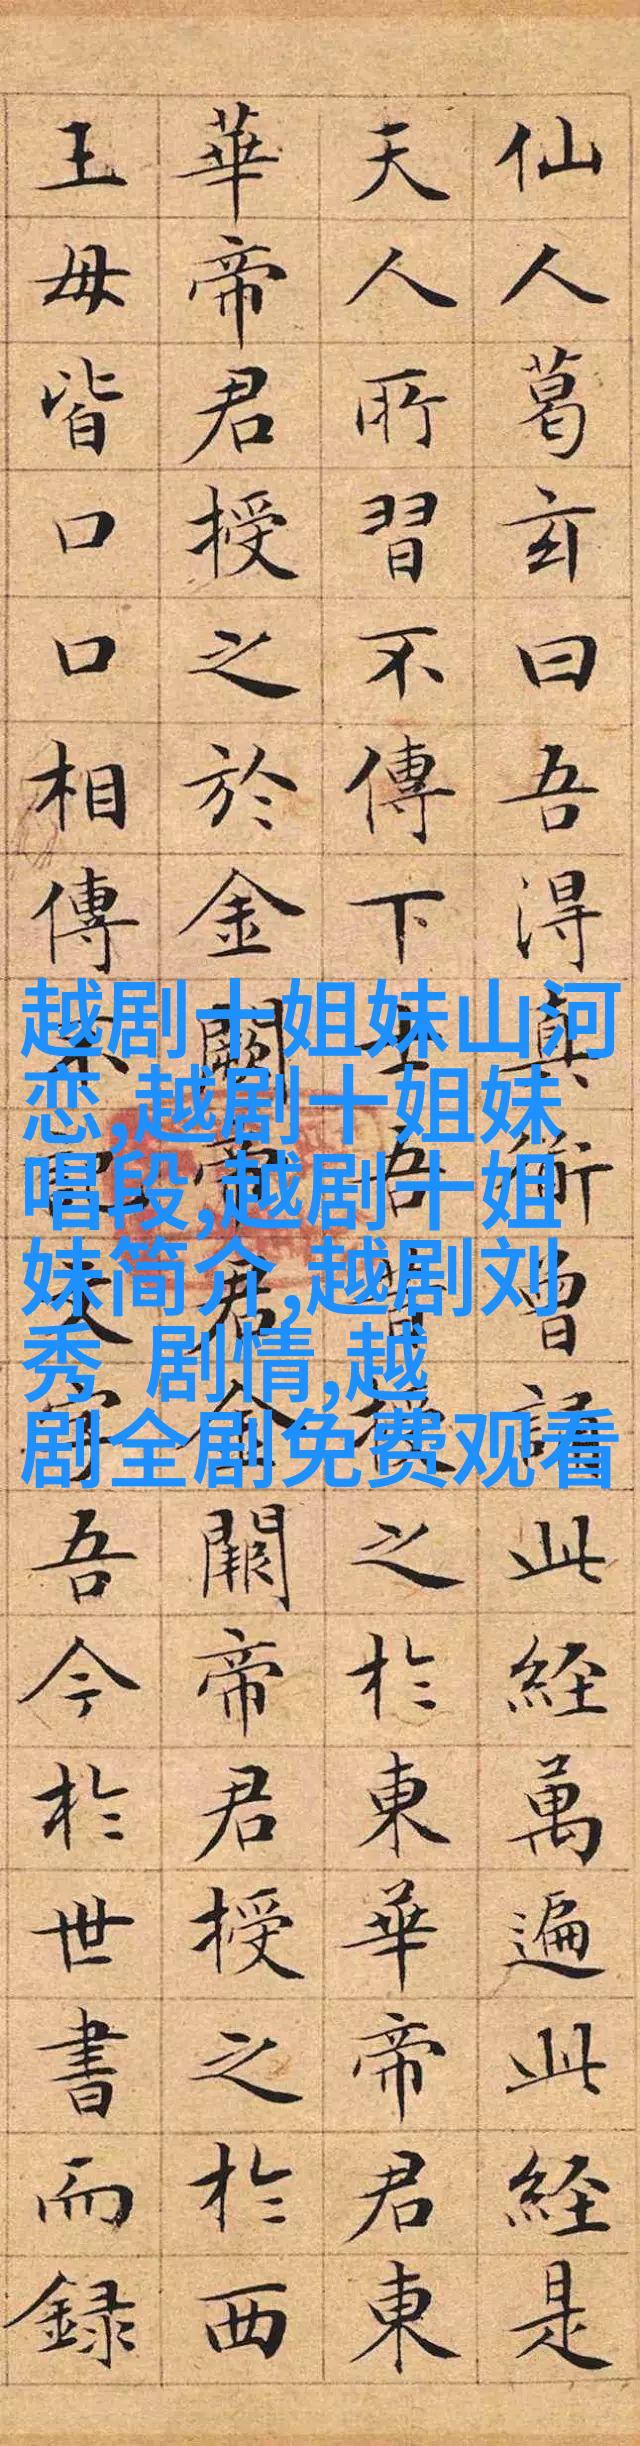 仙人葛玄曰吾得真術曾誦此經萬遍此經是
天人所習不傳下士吾昔授之於東華帝君東
華帝君授之於金闕帝君金闕帝君授之於西
王母皆口口相傳不記文字吾今於世書而録
越剧十姐妹山河
恋,越剧十姐妹
唱段,越剧十姐
妹简介,越剧刘
秀 剧情,越
剧全剧免费观看